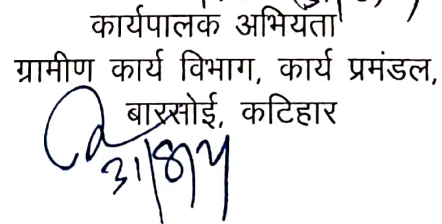 कार्यपालक अभियता
ग्रामीण कार्य विभाग, कार्य प्रमंडल,
बारसोई, कटिहार